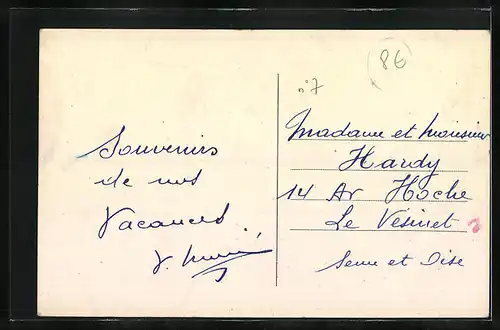 Souvenirs
de nos
Vacances
86
n°7
Madame et Monsieur
Hardy
14 Av Hoche
Le Vésinet
Seine et Oise